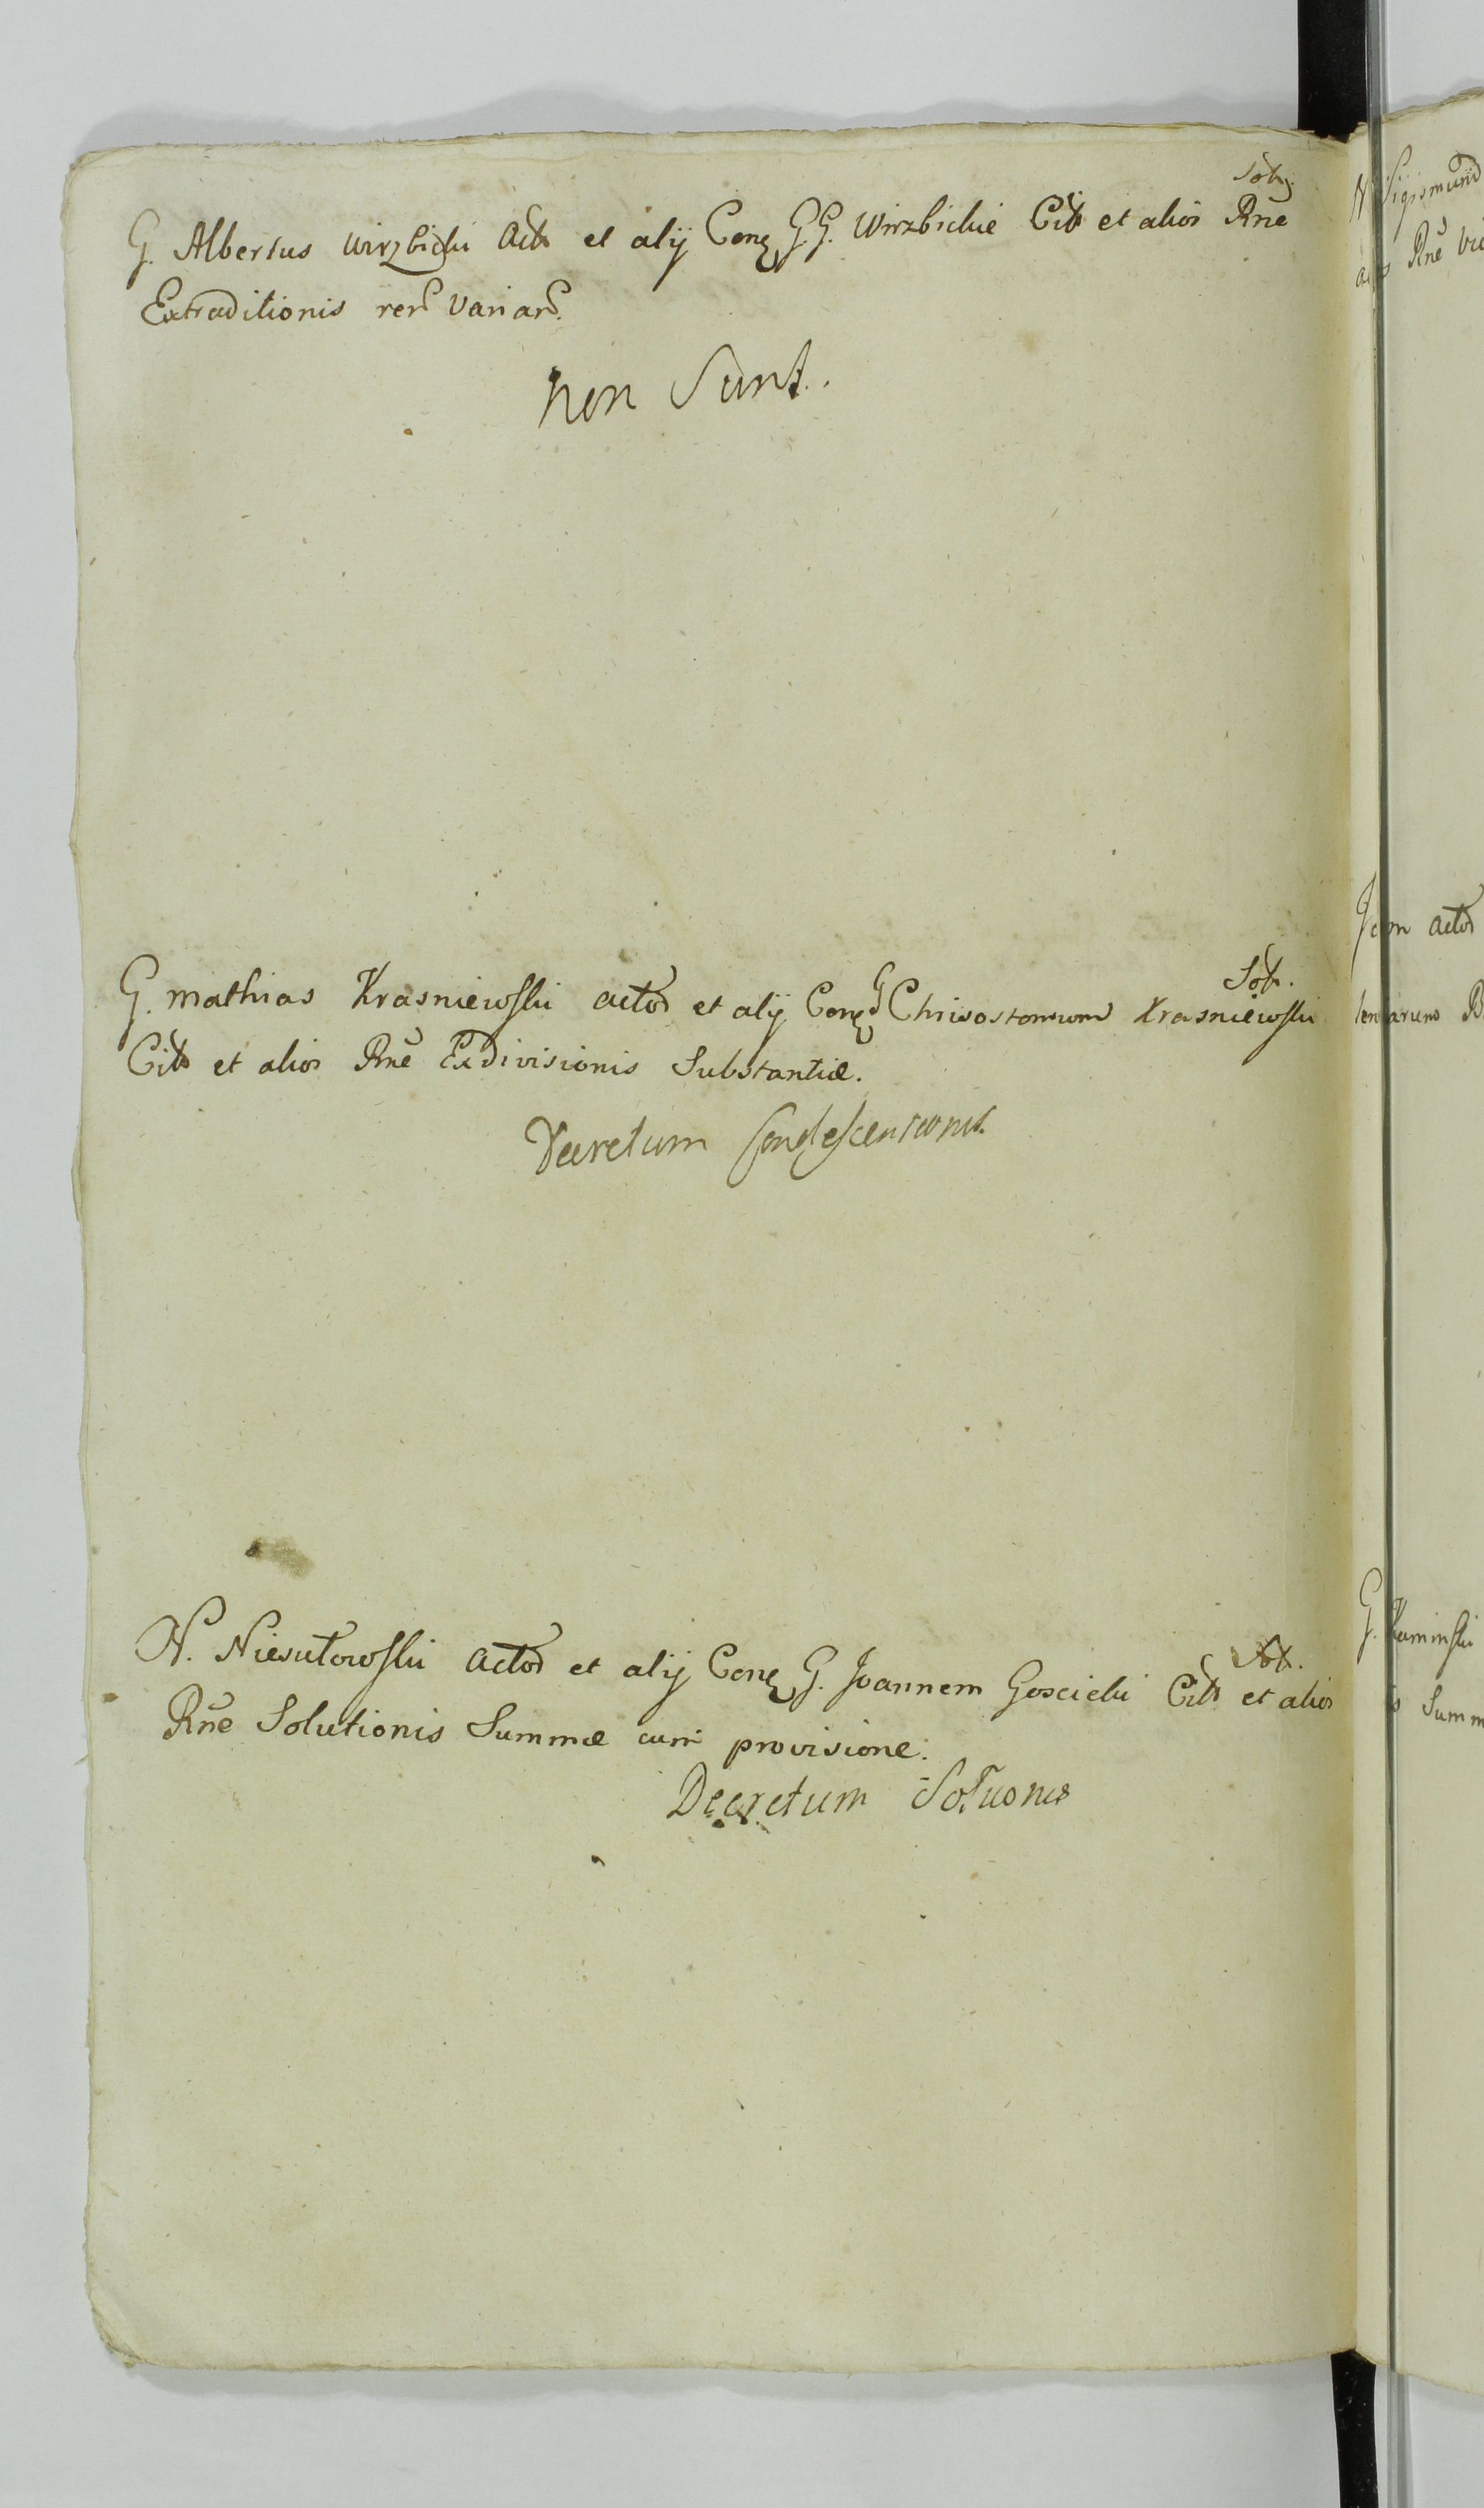 Sotr.
G. Albertus Wirzbicki Actr et alij Conq G.G. Wirzbickie Citt et alios Rne
Extraditionis rer variar.
non Sunt.
Sotr.
G. Mathias Krasniewski actor et alij Conq G Chrisostomum Krasniewski
Citt et alios Rne Exdivisionis Substantiæ.
Decretum Condescensionis
Sotr.
N. Niesułowski actor et alij Conq G. Joannem Goscicki Citt et alios
Rne Solutionis Summæ cum provisione.
Decretum Sotuonis
N Sigismund
Rne
Item actor
G. Kaminski
Summ